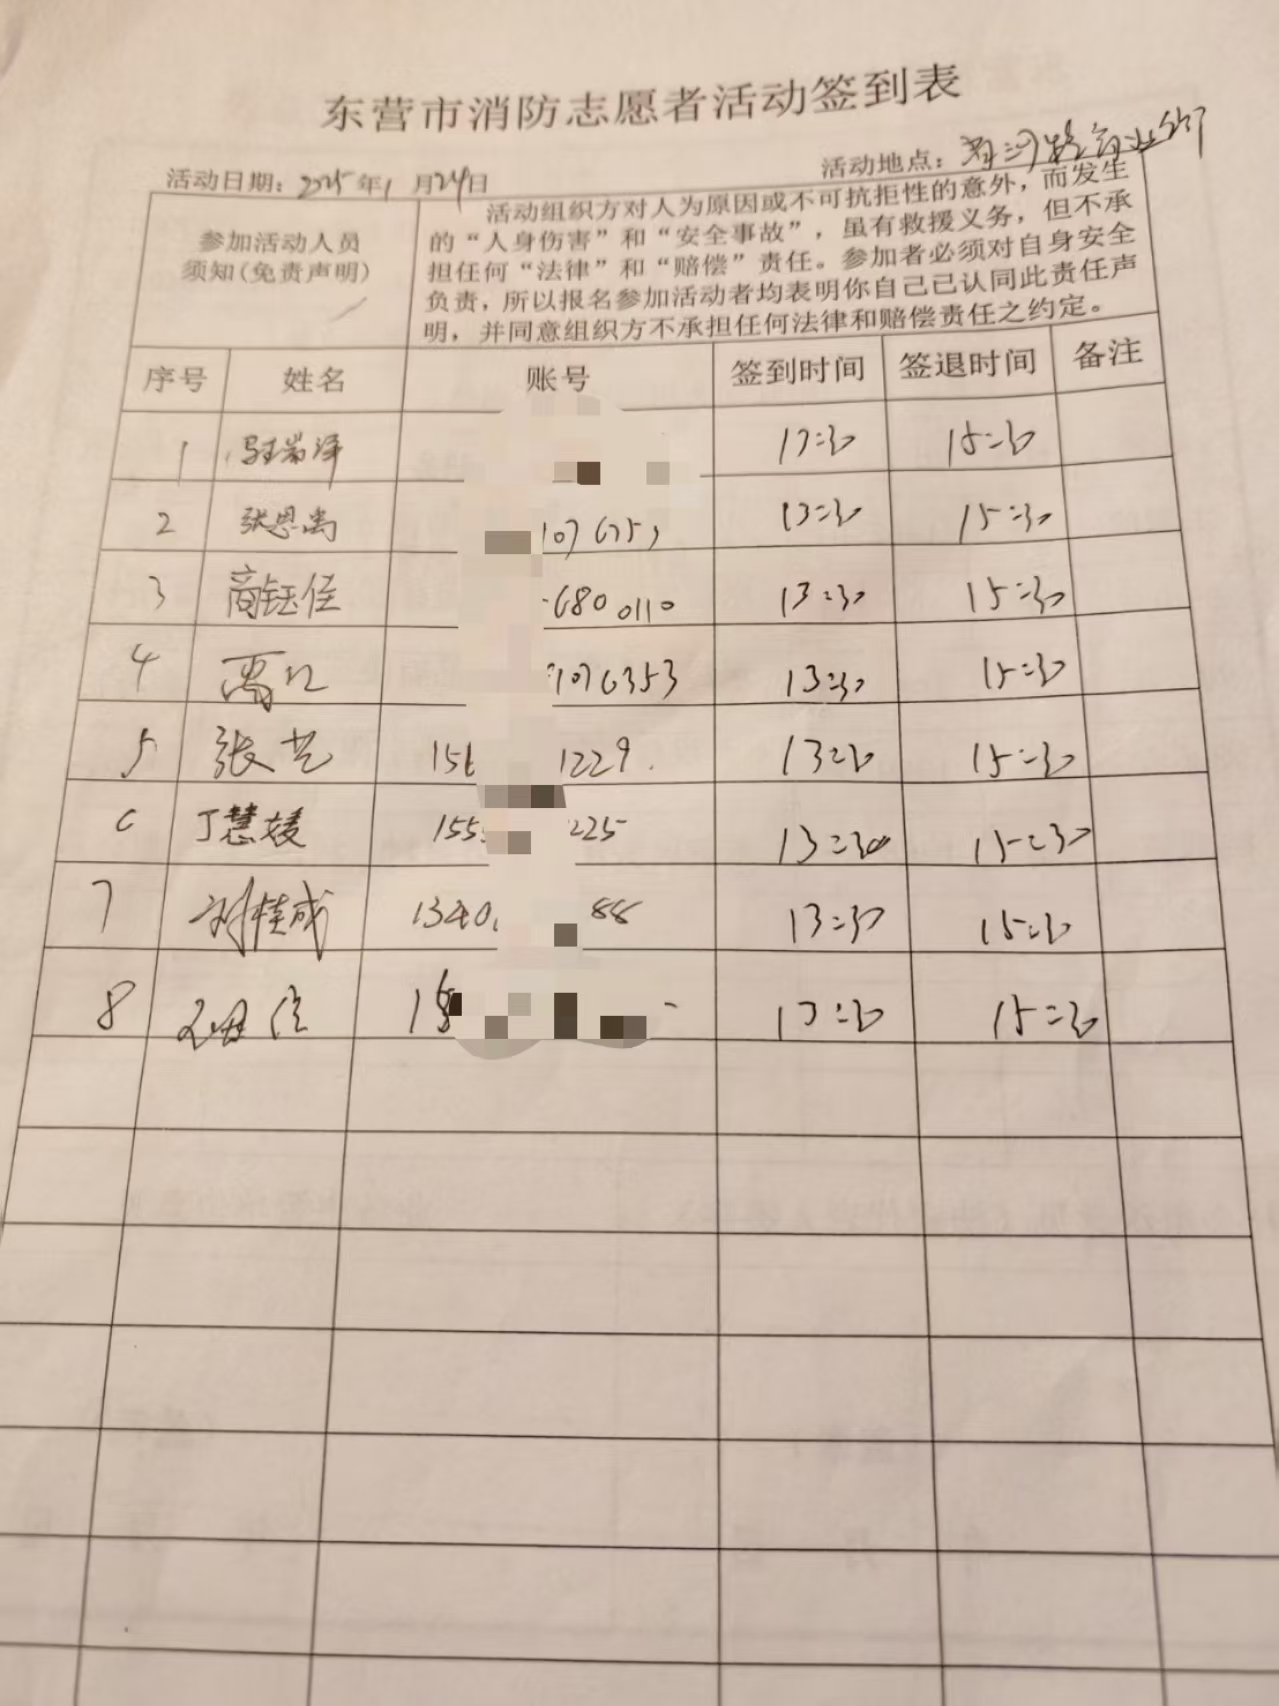 东营市消防志愿者活动签到表
活动日期：2025年1月24日 活动地点：
参加活动人员
须知(免责声明)
活动组织方对人为原因或不可抗拒性的意外，而发生
的“人身伤害”和“安全事故”，虽有救援义务，但不承
担任何“法律”和“赔偿”责任。参加者必须对自身安全
负责，所以报名参加活动者均表明你自己已认同此责任声
明，并同意组织方不承担任何法律和赔偿责任之约定。
序号 姓名 账号 签到时间 签退时间 备注
1 13:30 15:30
2 张恩禹 13:30 15:30
3 商钰佳 6800110 13:30 15:30
4 1076353 13:30 15:30
5 张艺 156 1229 13:30 15:30
6 丁慧媛 155 225 13:30 15:30
7 刘桂成 1340 88 13:30 15:30
8 13:30 15:30